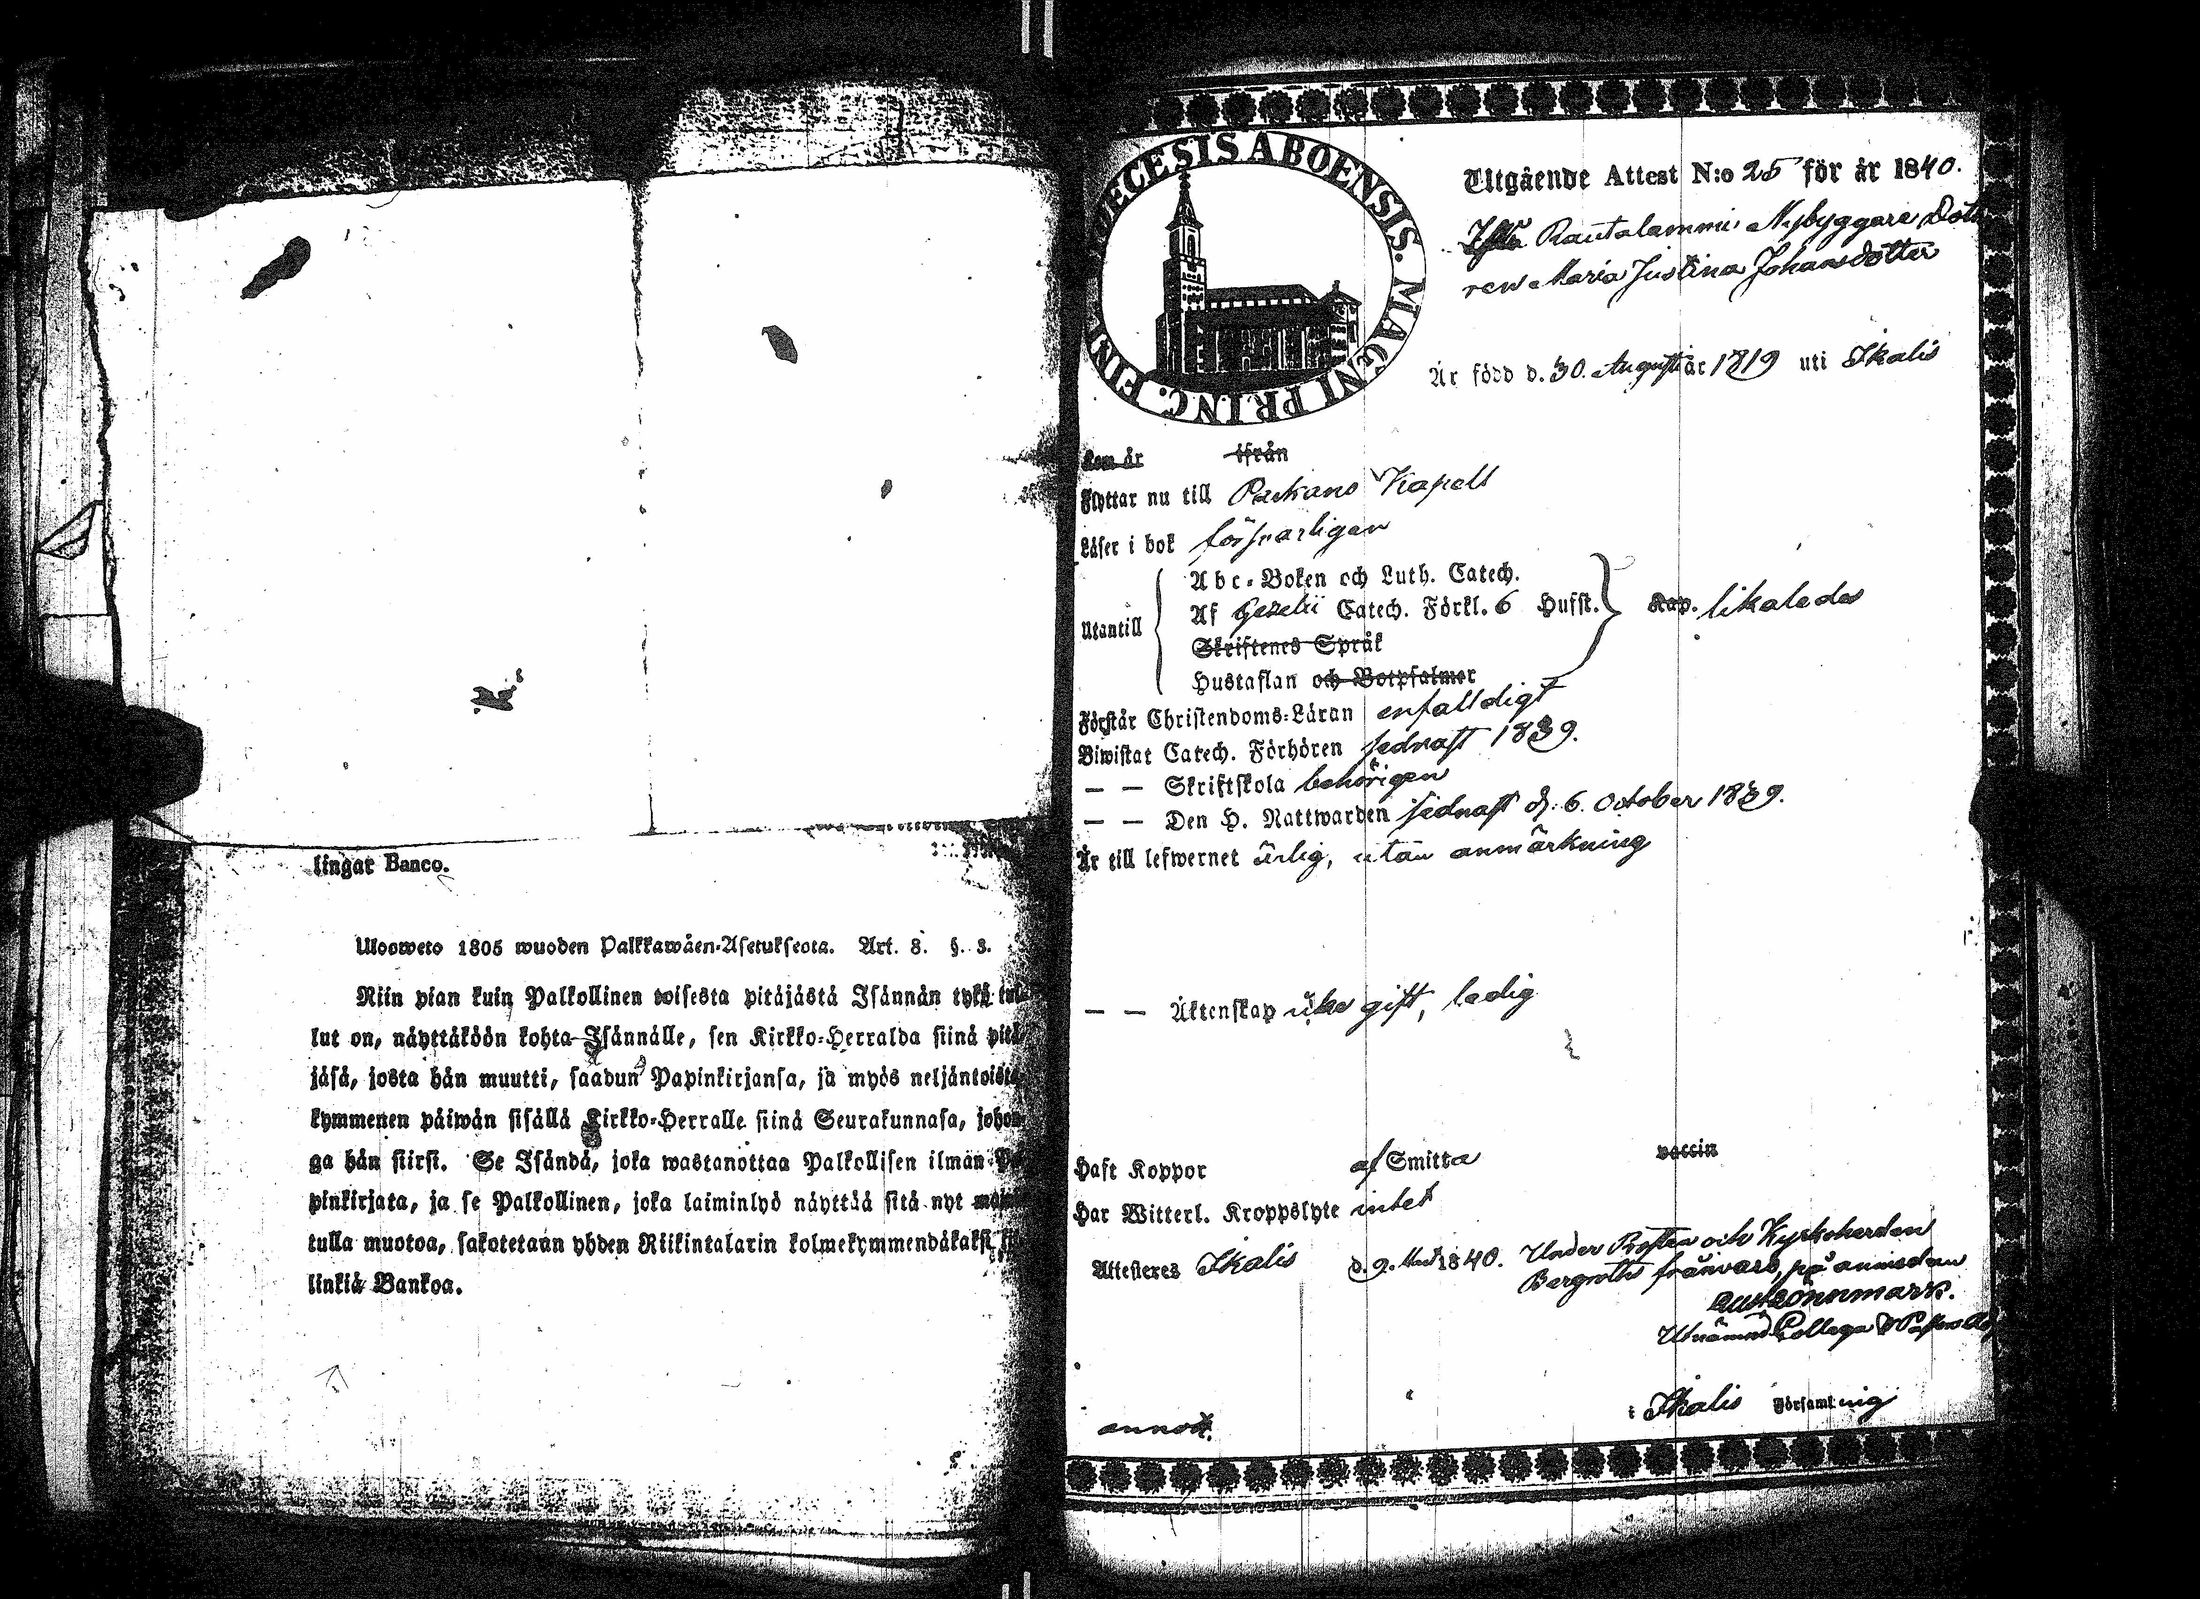 lingar Banco.
Ulosweto 1805 wuoden Palkkawäen-Asetuksesta. Art. 8. §. 3.
Niin pian kuin Palkollinen toisesta pitäjästä Isännän tykö tul-
lut on, näyttäköön kohta Isännälle, sen Kirkko-Herralda siinä pitä-
jäsä, josta hän muutti, saadun Papinkirjansa, ja myös neljäntoista-
kymmenen päiwän sisällä Kirkko-Herralle siinä Seurakunnasa, johon-
ga hän siirsi. Se Isändä, joka wastanottaa Palkollisen ilman Pa-
pinkirjata, ja se Palkollinen, joka laiminlyö näyttää sitä nyt
tulla muotoa, sakotetaan yhden Riikintalarin kolmekymmendäkaksi kil-
linkiä Bankoa.
DIOECESIS ABOENSIS. MAGNI PRINC. FINL
Utgående Attest N:o 25 för år 1840.
Rautalammi Nybyggare Dott
ren Maria Justina Johansdotter
Är född d. 30. Augusti år 1819 uti Ikalis
Kom år ifrån
Flyttar nu till Parkano Kapell
Läser i bok försvarligen
Abc-Boken och Luth. Catech.
Utantill Af Gezelii Catech. Förkl. 6 Hufst. Kap. likaledes
Skriftenes Språk
Hustaflan och Botpsalmer
Förstår Christendoms-Läran enfalldigt
Biwistat Catech. Förhören sednast 1839.
— — Skriftskola behörigen
— — Den H. Nattwarden sednast d. 6. October 1839.
Är till lefwernet ärlig, utan anmärkning
— — Äktenskap icke gift, ledig
Haft Koppor af Smitta vaccin
Har Witterl. Kroppslyte intet
Attesteres Ikalis d. 9. 1840. Under Prosten och Kyrkoherden
Bergroths frånvaro, på
Lönnmark.
Utnämnd Collega
i Ikalis Församlning
annot.